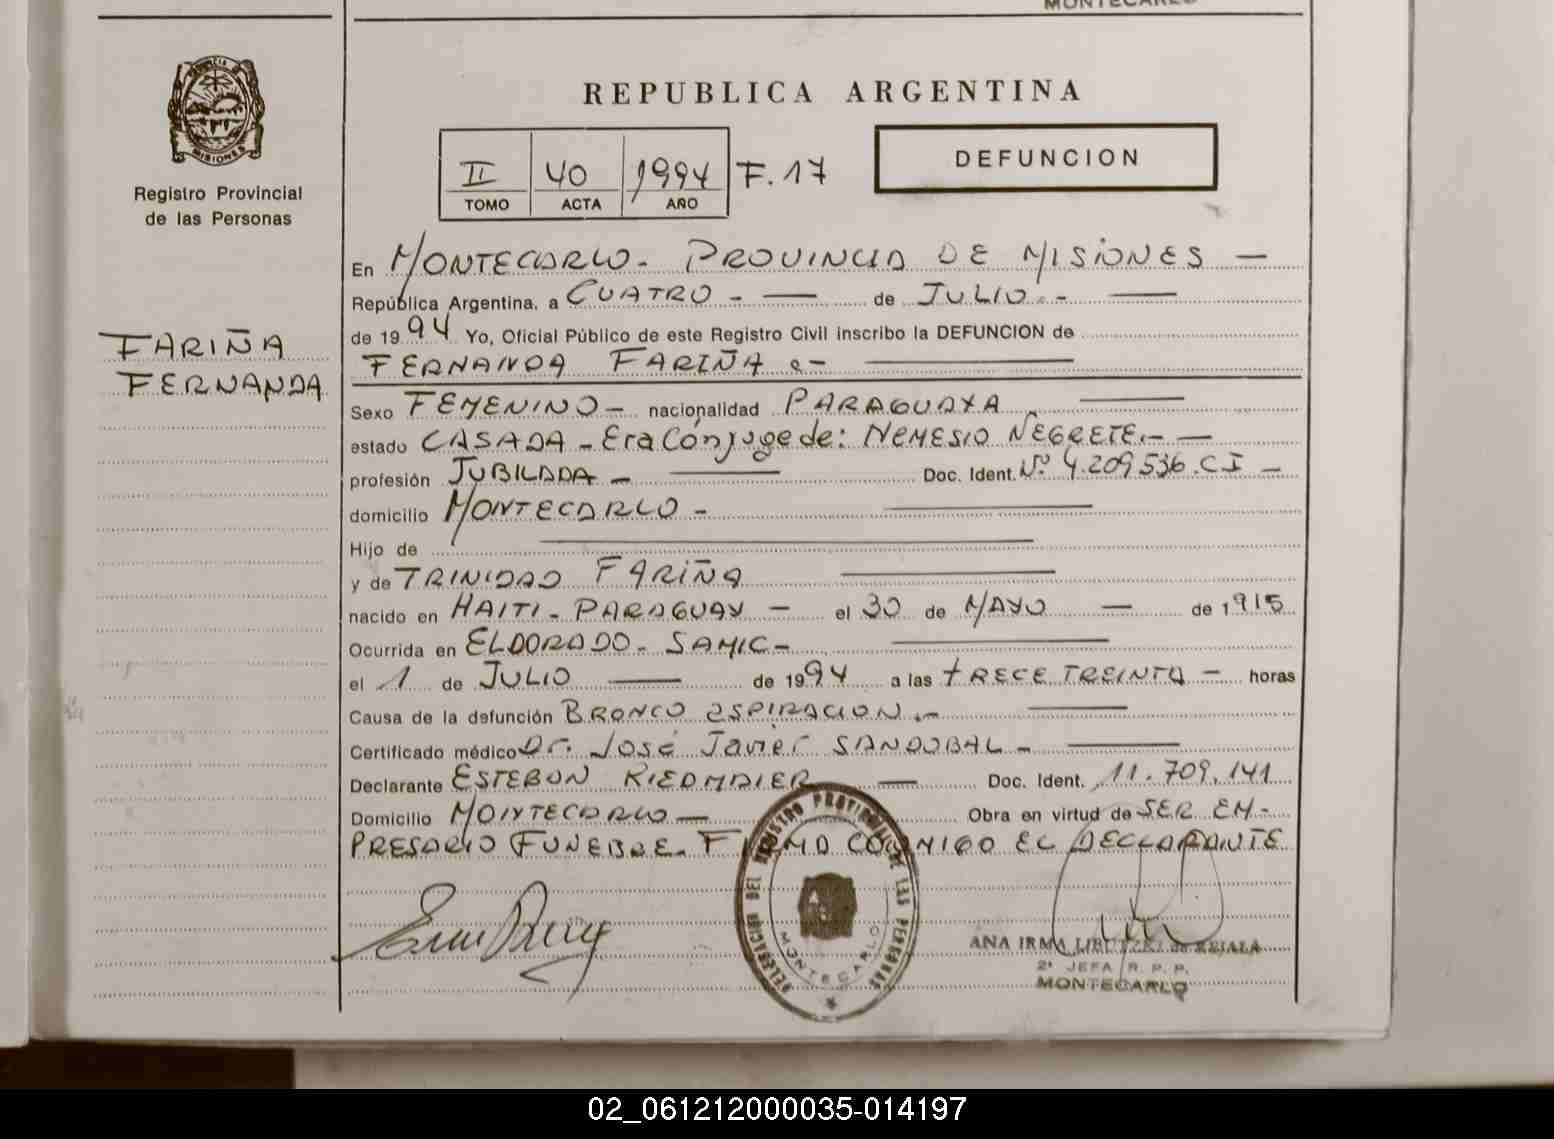 MONTECARLO
REPUBLICA ARGENTINA
PROVINCIA DE MISIONES
Registro Provincial
de las Personas
II 40 1994 F. 17
TOMO ACTA AÑO
DEFUNCION
FARIÑA
FERNANDA
En MONTECARLO - PROVINCIA DE MISIONES —
República Argentina, a CUATRO - — de JULIO.- —
de 1994 Yo, Oficial Público de este Registro Civil inscribo la DEFUNCION de
FERNANDA FARIÑA .- —
Sexo FEMENINO - nacionalidad PARAGUAYA —
estado CASADA - Era Cónjuge de: NEMESIO NEGRETE.- —
profesión JUBILADA - — Doc. Ident. Nº 4.209.536. CI -
domicilio MONTECARLO - —
Hijo de —
y de TRINIDAD FARIÑA —
nacido en HAITI - PARAGUAY - el 30 de MAYO — de 1915
Ocurrida en ELDORADO - SAMIC - —
el 1 de JULIO — de 1994 a las TRECE TREINTA - horas
Causa de la defunción BRONCO ASPIRACION .- —
Certificado médico Dr. José Javier SANDOBAL - —
Declarante ESTEBAN RIEDMAIER — Doc. Ident. 11.709.141
Domicilio MONTECARLO — Obra en virtud de SER EM-
PRESARIO FUNEBRE. FIRMA CONMIGO EL DECLARANTE
DELEGACION DEL REGISTRO PROVINCIAL DE LAS PERSONAS
MONTECARLO
ANA IRMA de
2ª JEFA R. P. P.
MONTECARLO
02_061212000035-014197